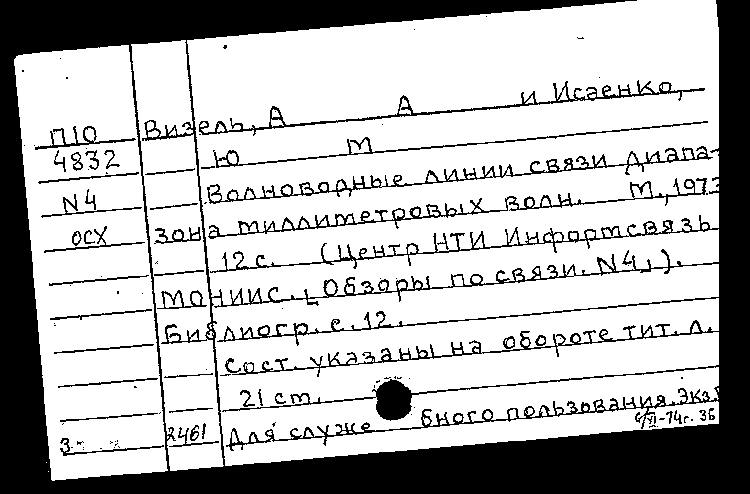 П10 Визель, А А и Исаенко,
4832 Ю М
Волноводные линии связи диапа-
N4
ОСХ зона миллиметровых волн. М., 1973
12 с. (Центр НТИ Информсвязь
МОНИИС. Обзоры по связи. N4).
Библиогр. с. 12.
Сост. указаны на обороте тит. л.
21 cm.
3 2461 Для служе бного пользования. Экз.
6/VI-74г. 36